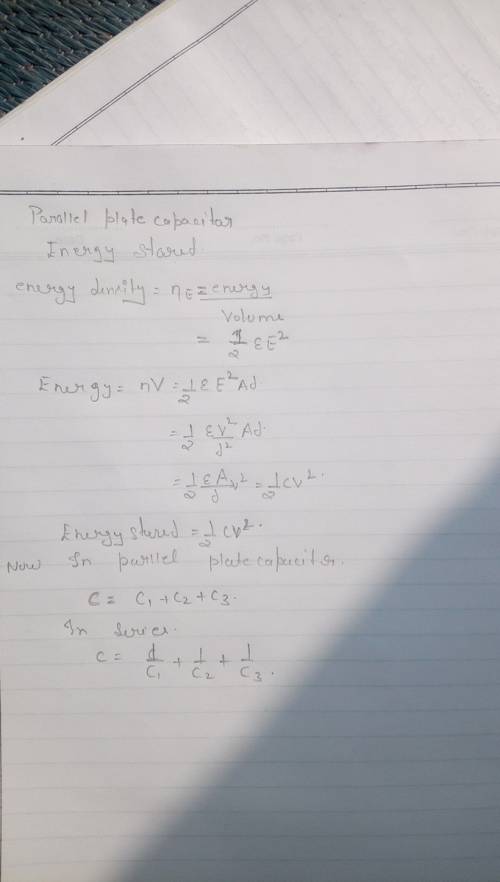 Parallel plate capacitar
Energy stared.
energy density = ηE = energy
Volume
= 1/2 εE²
Energy = nV = 1/2 ε E² Ad.
= 1/2 εV²/d² Ad.
= 1/2 εA/d V² = 1/2 CV².
Energy stared = 1/2 CV².
Now In parllel plate capacitor.
C = C₁ + C₂ + C₃.
In series.
C = 1/C₁ + 1/C₂ + 1/C₃.